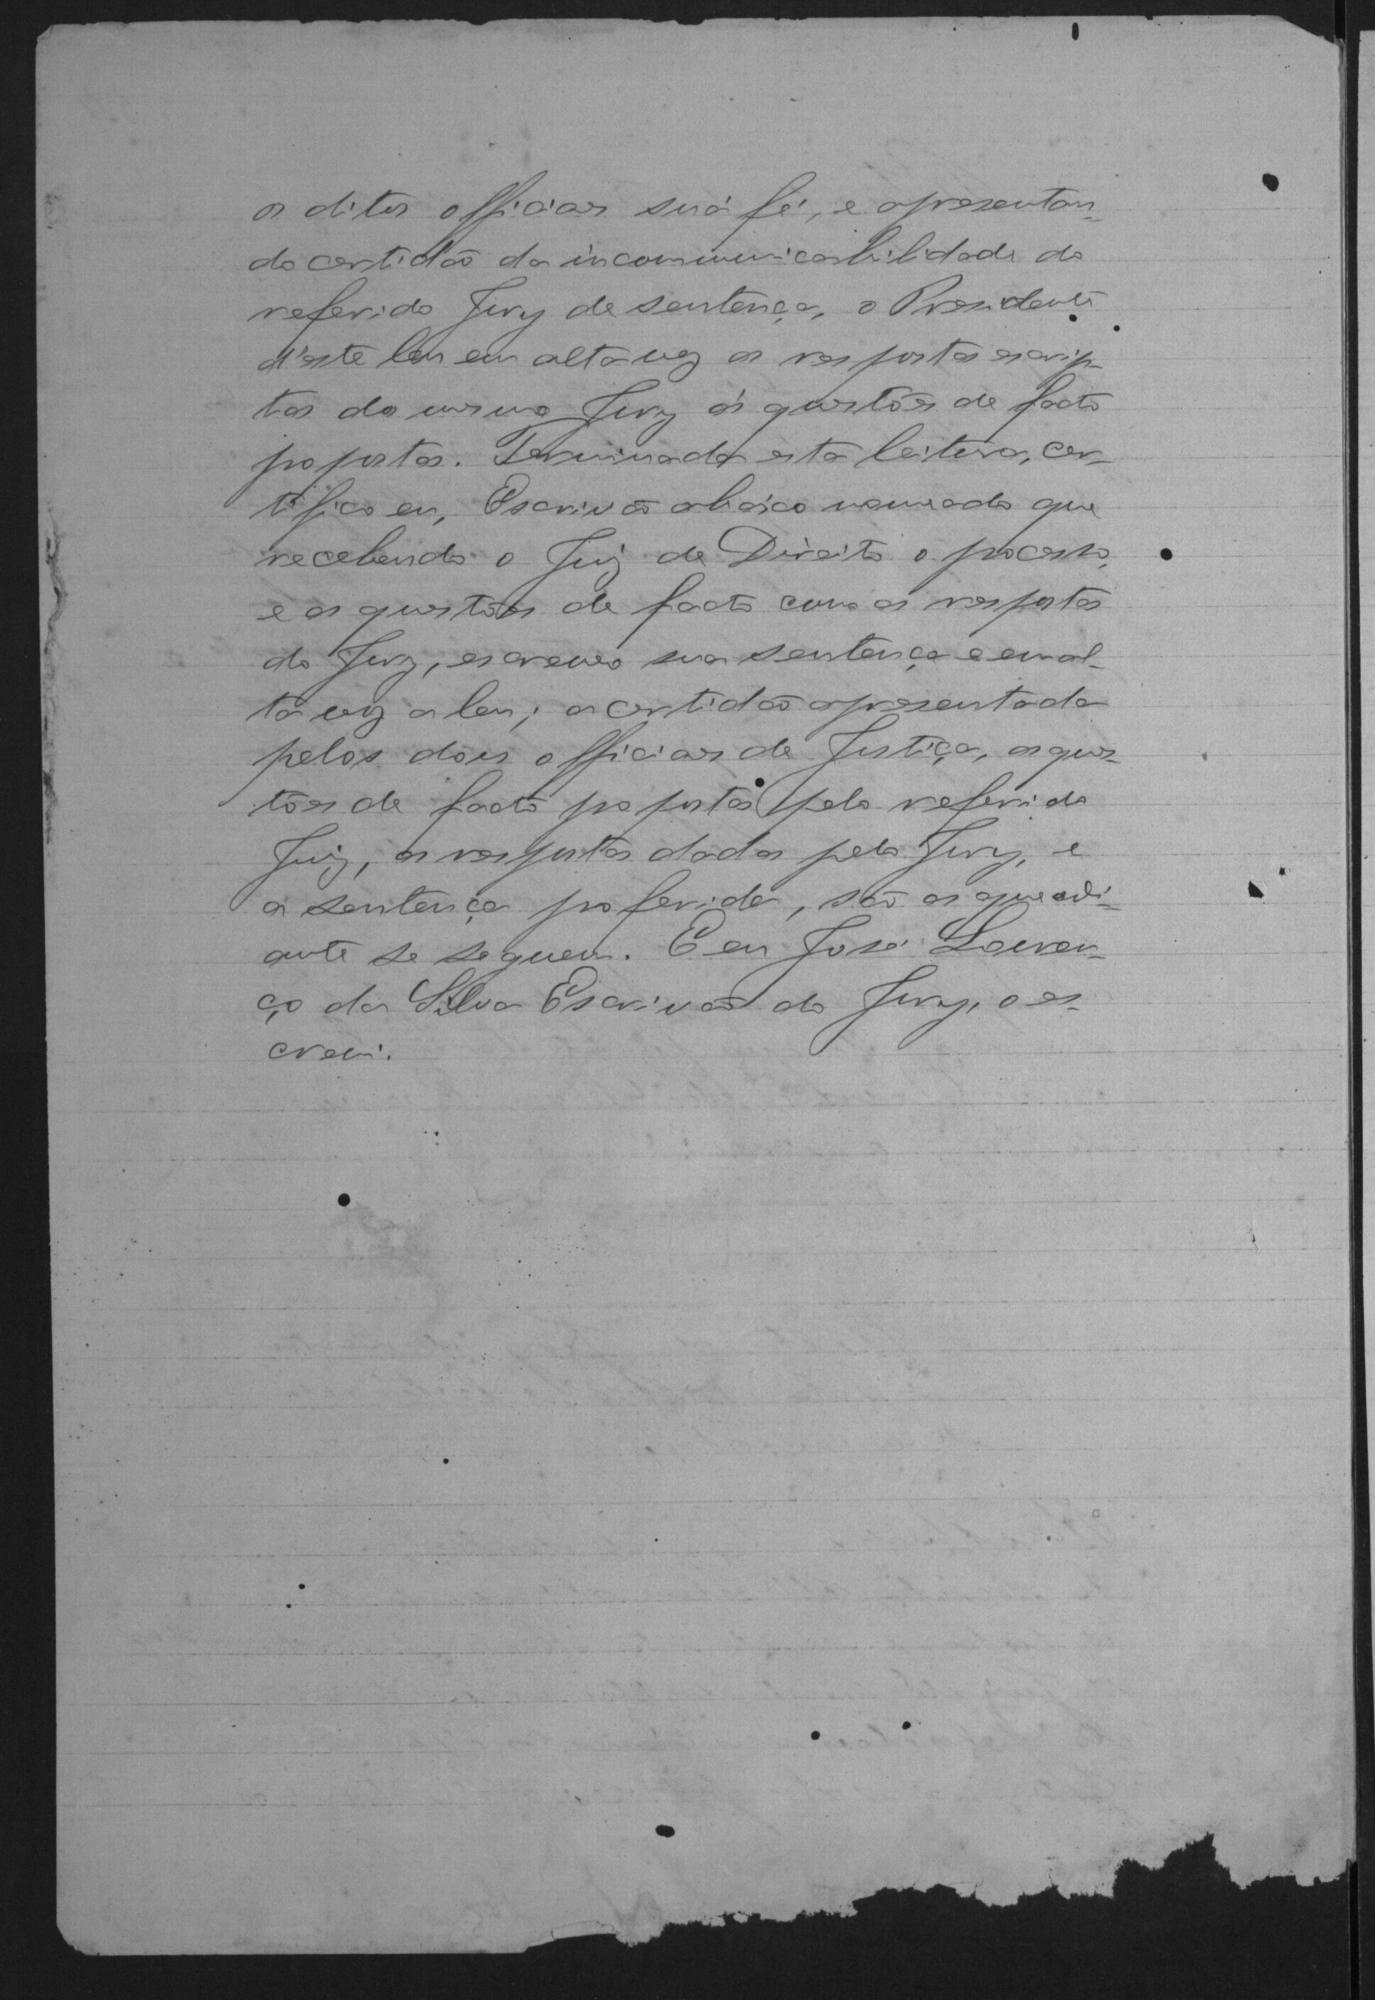 os ditos officiaes sua fé, e apresentan-
do certidão da incommunicabilidade do
referido Jury de sentença, o Presidente
d'este leu em alta voz as respostas escrip-
tas do mesmo Jury ás questões de facto
propostas. Terminada esta leitura, cer-
tifico eu, Escrivão abaixo nomeado que
recebendo o Juiz de Direito o processo,
e as questões de facto com as respostas
do Jury, escreveo sua sentença e em al-
ta voz a leu; a certidão apresentada
pelos dous officiaes de Justiça, as ques-
tões de facto propostas pelo referido
Juiz, as respostas dadas pelo Jury, e
a sentença proferida, são as que adi-
ante se seguem. E eu José Louren-
ço da Silva Escrivão do Jury, o es-
crevi.